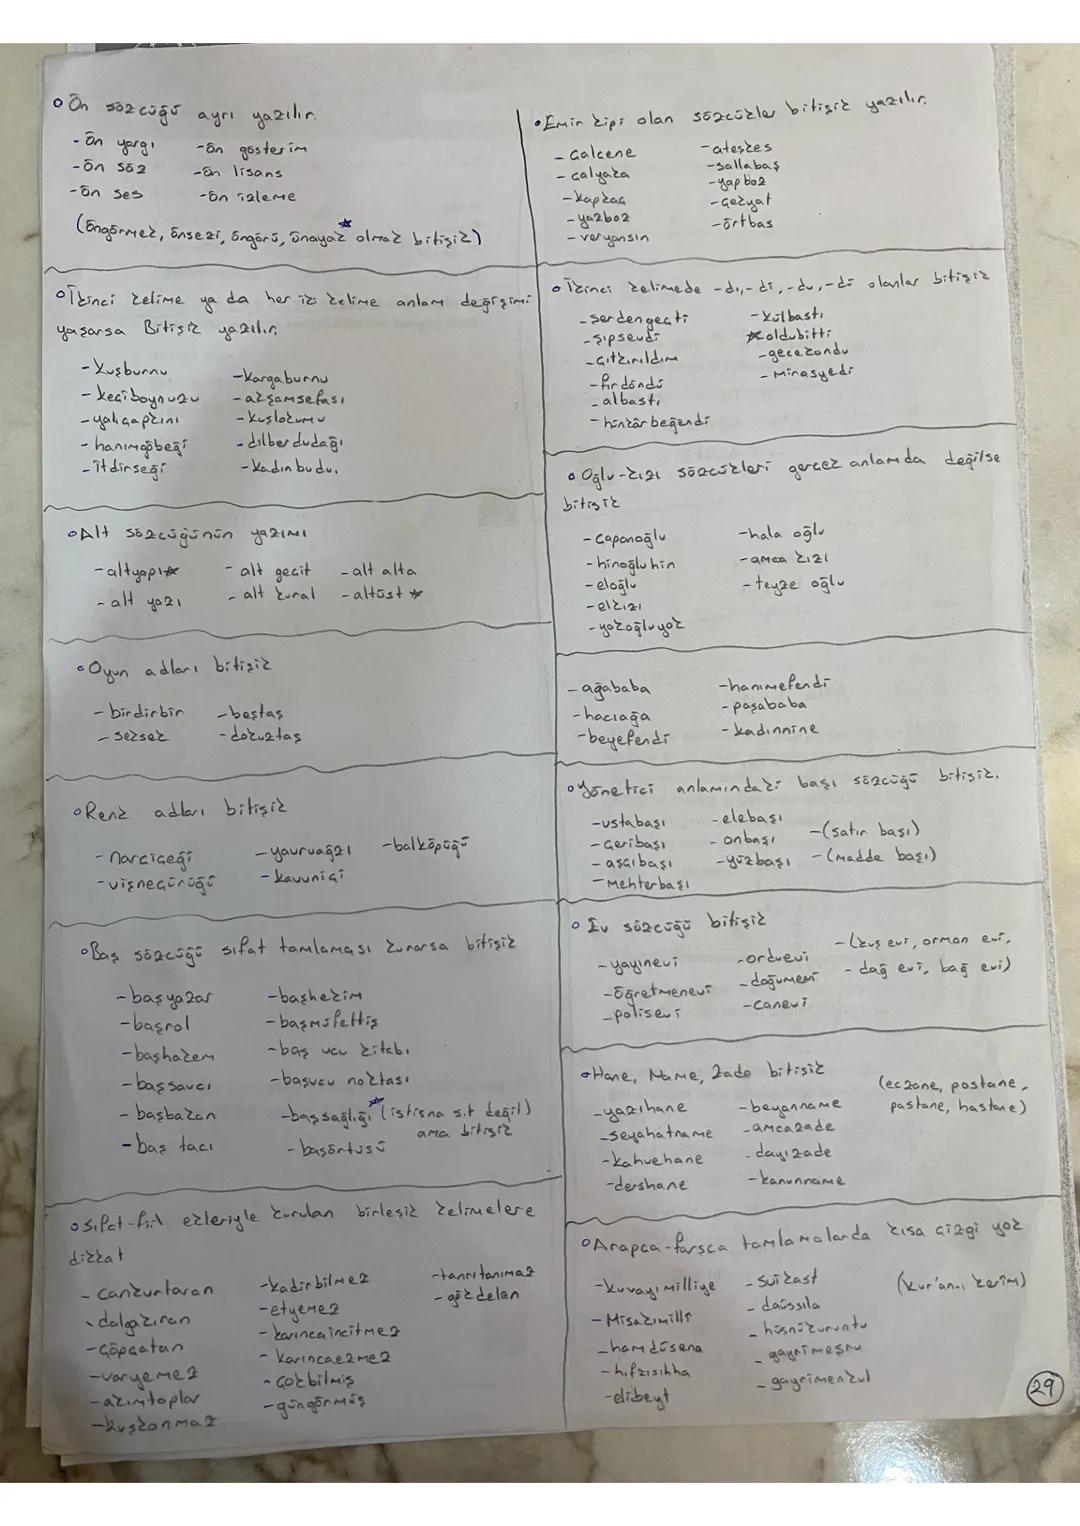 Ön sözcüğü ayrı yazılır.
- ön yargı -ön gösterim
-ön söz -ön lisans
-ön ses -ön izleme
(öngörmek, önsezi, öngörü, önayak olmak bitişik)
İkinci kelime ya da her iki kelime anlam değişimi
yaşarsa Bitişik yazılır.
- kuşburnu -kargaburnu
- keçiboynuzu - akşamsefası
- yalıçapkını - kuşlokumu
- hanımgöbeği - dilberdudağı
- itdirseği - kadınbudu.
Alt sözcüğünün yazımı
- altyapı - alt geçit - alt alta
- alt yazı - alt kural - altüst
Oyun adları bitişik
- birdirbir - beştaş
- seksek - dokuztaş
Renk adları bitişik
- narçiçeği - yavruağzı - balköpüğü
- vişneçürüğü - kavuniçi
Baş sözcüğü sıfat tamlaması kurarsa bitişik
- başyazar - başhekim
- başrol - başmüfettiş
- başhakem - baş ucu kitabı
- başsavcı - başucu noktası
- başbakan - başsağlığı (istisna sıt değil)
ama bitişik
- baş tacı - başörtüsü
Sıfat-fiil ekleriyle kurulan birleşik kelimelere
dikkat
- cankurtaran - kadirbilmez - tanrıtanımaz
- dalgakıran - etyemez - gökdelen
- çöpçatan - karıncaincitmez
- varyemez - karıncaezmez
- akımtoplar - çokbilmiş
- kuşkonmaz - güngörmüş
Emir kipi olan sözcükler bitişik yazılır.
- çalçene - ateşkes
- çalyaka - sallabaş
- kapkaç - yapboz
- yazboz - çekyat
- veryansın - örtbas
İkinci kelimede -dı,-di,-du,-dü olanlar bitişik
- serdengeçti - külbastı
- şıpsevdi oldubitti
- çıtkırıldım - gecekondu
- fırdöndü - mirasyedi
- albastı
- hünkârbeğendi
Oğlu-kızı sözcükleri gerçek anlamda değilse
bitişik
- çapanoğlu - hala oğlu
- hinoğluhin - amca kızı
- eloğlu - teyze oğlu
- elkızı
- yokoğluyok
- ağababa - hanımefendi
- hacıağa - paşababa
- beyefendi - kadınnine
Yönetici anlamındaki başı sözcüğü bitişik.
- ustabaşı - elebaşı
- çeribaşı - onbaşı - (satır başı)
- aşçıbaşı - yüzbaşı - (madde başı)
- Mehterbaşı
Ev sözcüğü bitişik
- yayınevi - orduevi - (kuş evi, orman evi,
- öğretmenevi - doğumevi - dağ evi, bağ evi)
- polisevi - canevi
Hane, Name, Zade bitişik
(eczane, postane,
- yazıhane - beyanname pastane, hastane)
- seyahatname - amcazade
- kahvehane - dayızade
- dershane - kanunname
Arapça-farsça tamlamalarda kısa çizgi yok
- kuvayımilliye - suikast (kur'an-ı kerîm)
- Misakımillî - daüssıla
- hamdüsena - hüsnükuruntu
- hıfzısıhha - gayrimeşru
- ehlibeyt - gayrimenkul
29